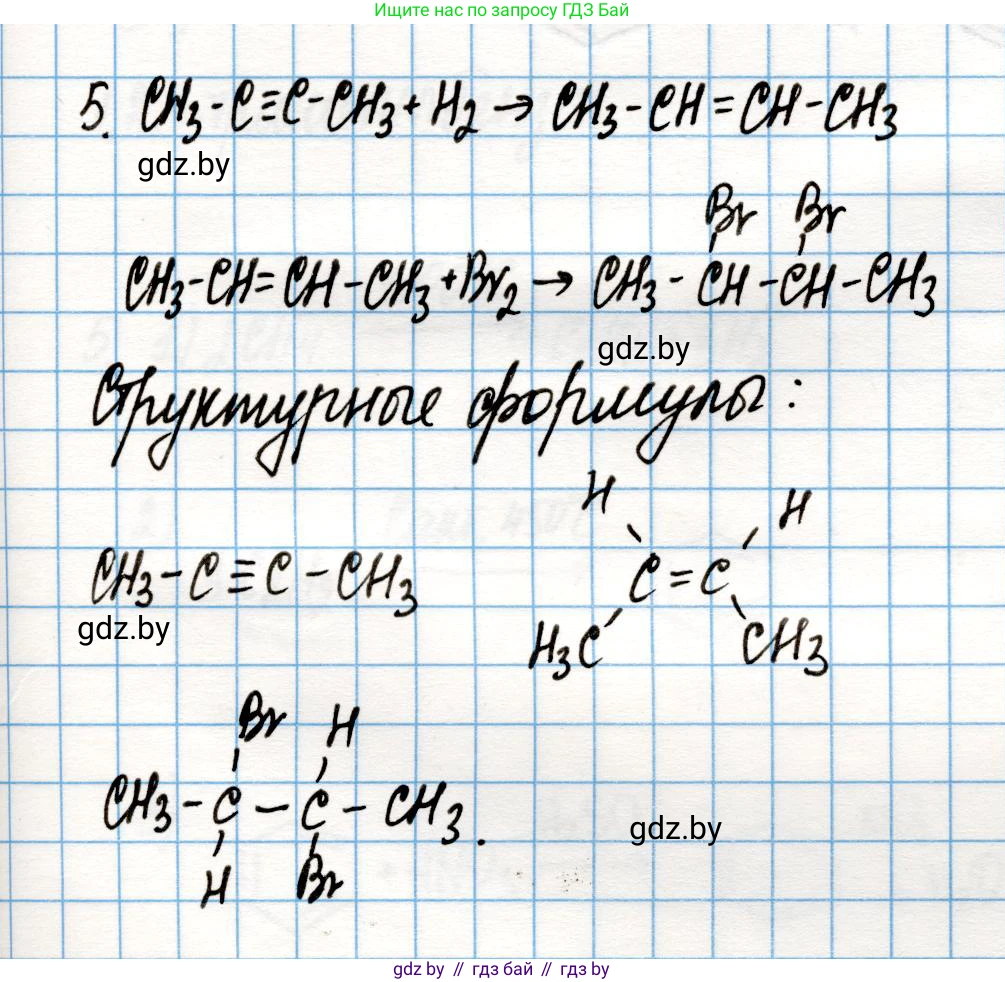 Ищите нас по запросу ГДЗ Бай
5. CH₃-C≡C-CH₃+H₂→ CH₃-CH=CH-CH₃
gdz.by
Br Br
CH₃-CH=CH-CH₃+Br₂→ CH₃-CH-CH-CH₃
gdz.by
Структурные формулы:
H H
CH₃-C≡C-CH₃ C=C
gdz.by
H₃C CH₃
Br H
CH₃-C-C-CH₃.
gdz.by
H Br
gdz.by // гдз бай // gdz.by